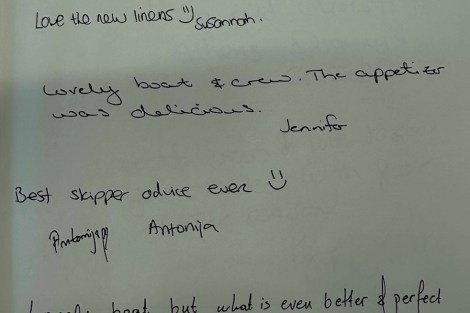 Love the new linens Susannah.
Lovely boat & crew. The appetizer
was delicious.
Jennifer
Best skipper advice ever
Antonija Antonija
Lovely boat, but what is even better & perfect